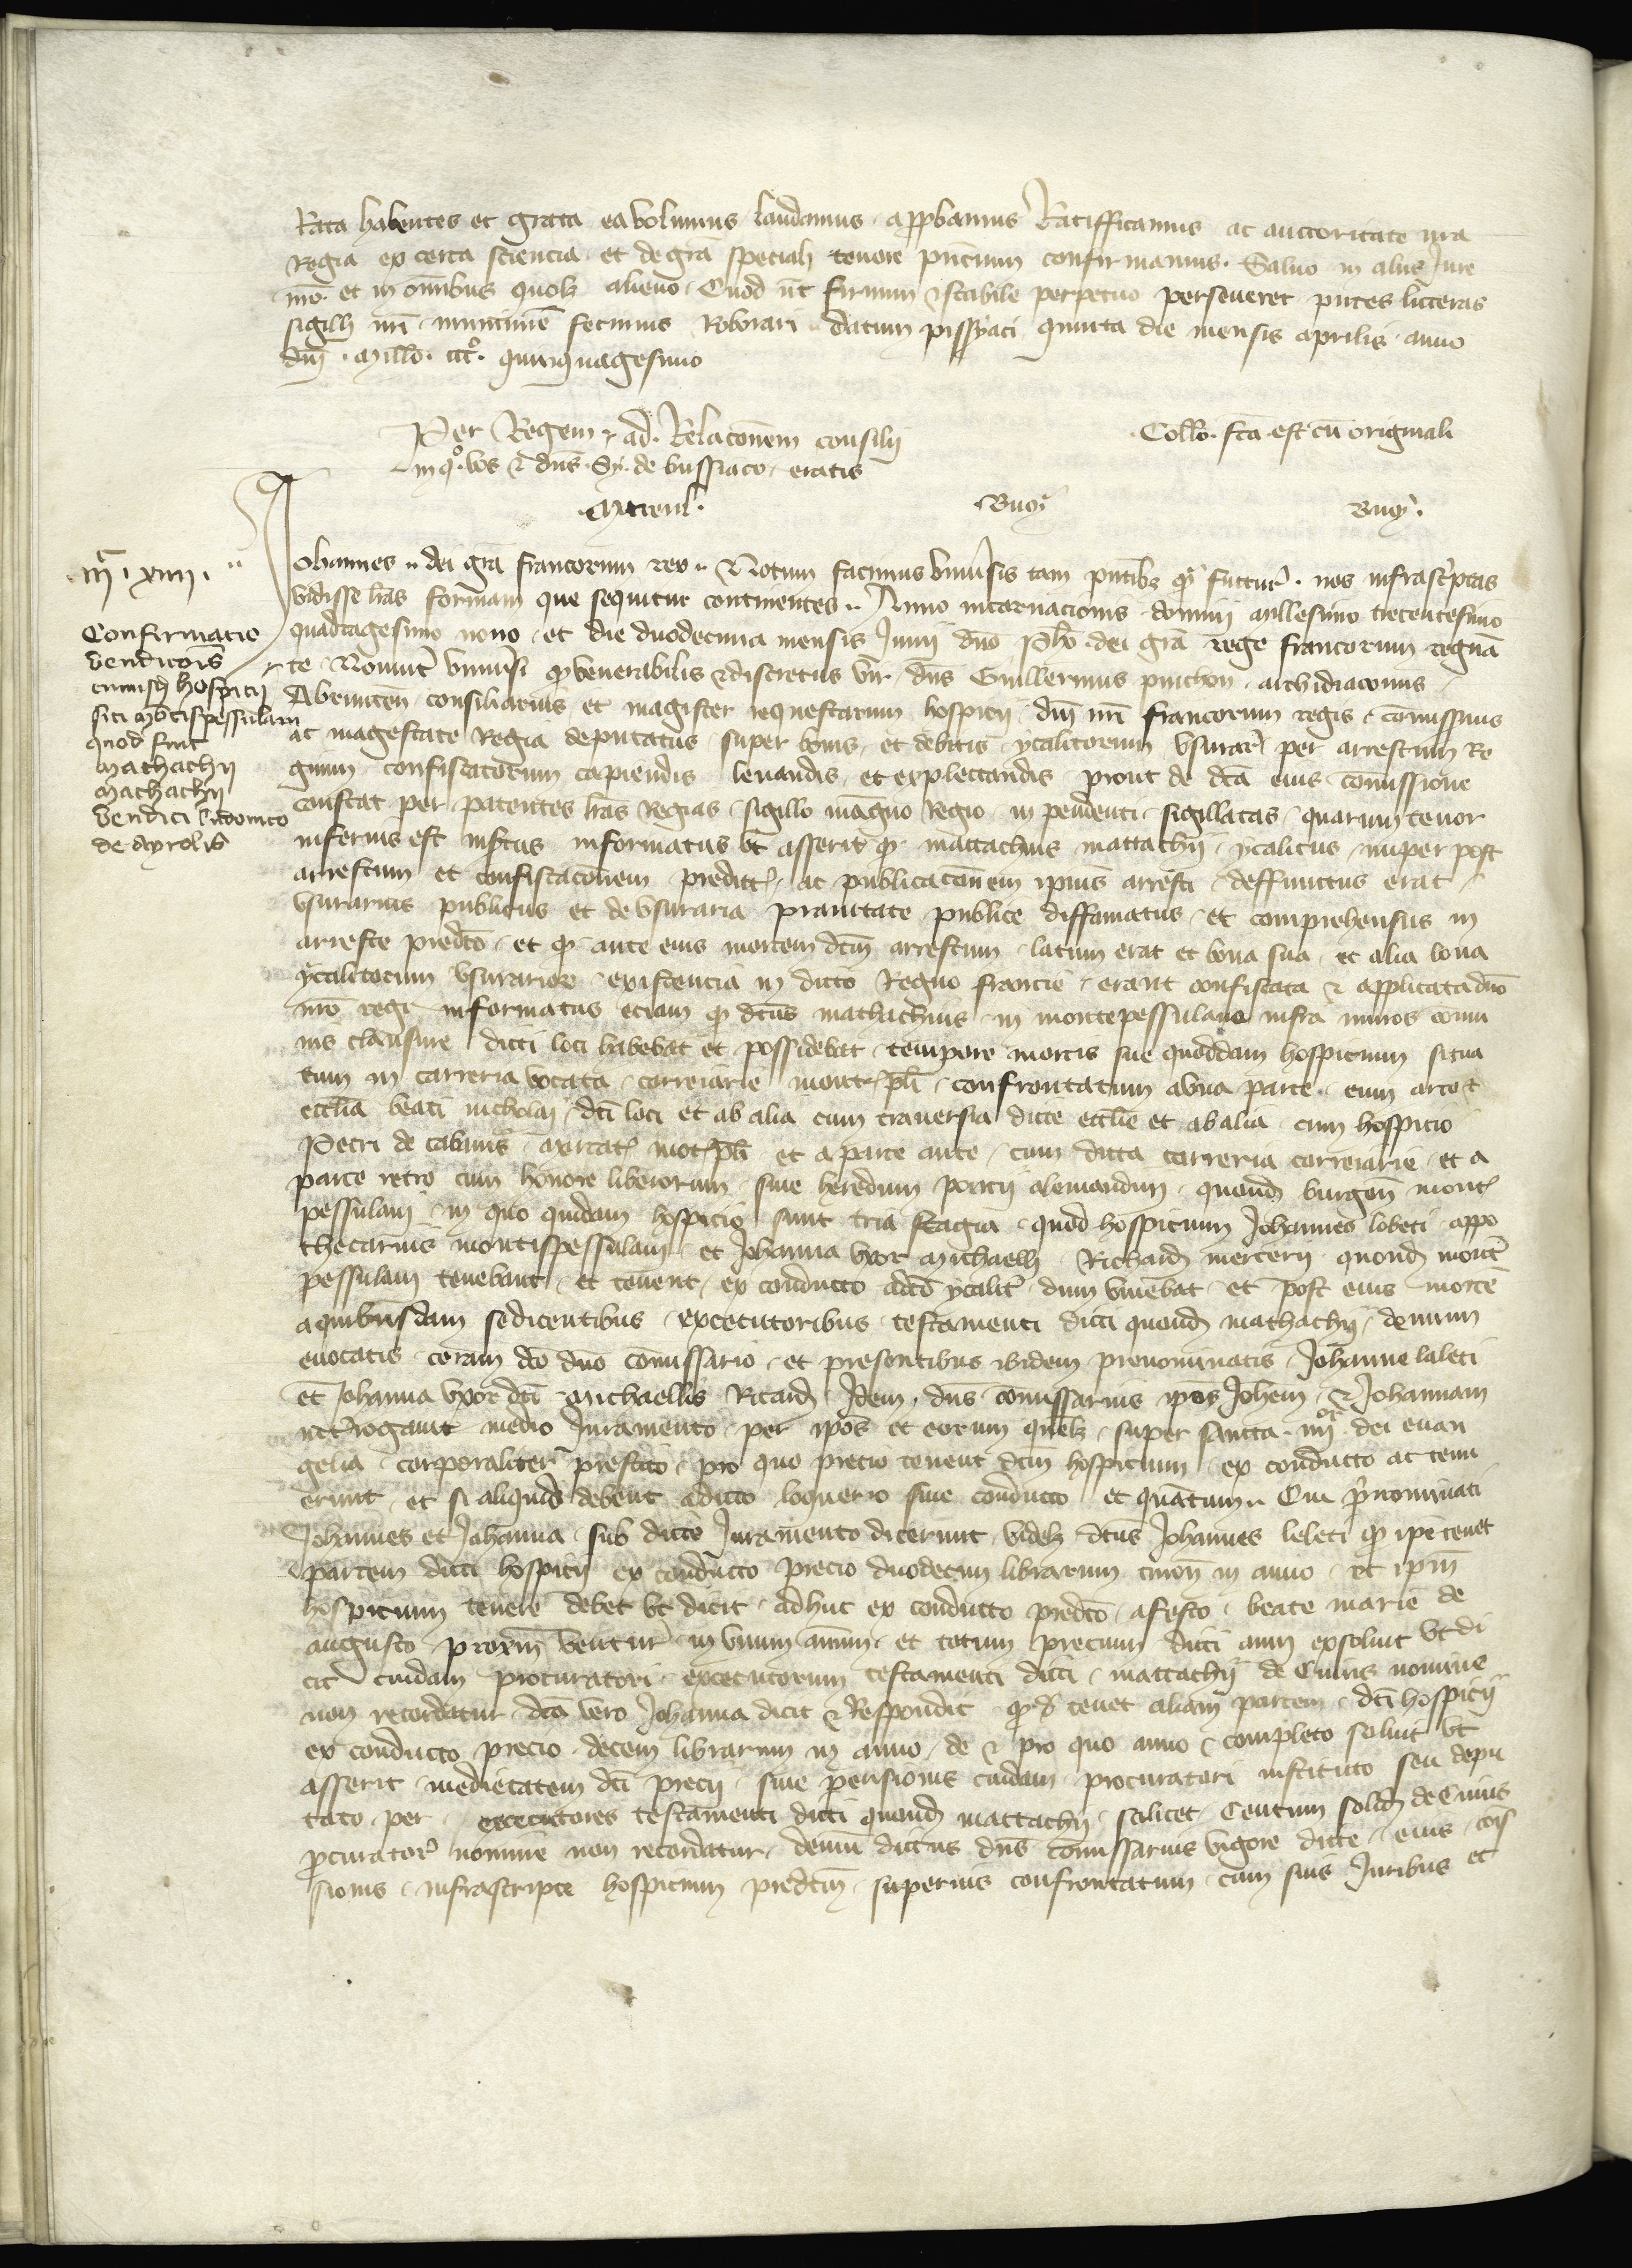 Rata habentes et grata ea volumus laudamus appbamus Ratifficamus ac auctoritate nra
Regia ex certa sciencia et de gra speciali tenore pncium confirmamus. Saluo in aliis Jure
nro. et in omnibus quolz alieno. Quod ut firmum & stabile perpetuo perseueret pntes litteras
sigilli nri munimine fecimus Roborari datum pissyaci quinta die mensis aprilis anno
dni. Millo. ccco. quinquagesimo
Per Regem & ad Relaconem consilii
in quo vos & dns. Sy. de bussiaco eratis
Collo. fca est cu originali
Mcreul.
Buc̃y
Buc̃y.
m̃. xiiii.
Johannes dei gra francorum rex Notum facimus vniuersis tam pntibz qz futur. nos infrascptas
vidisse lras formam que sequitur continentes Anno incarnacionis domini millesimo trecentesimo
quadragesimo nono et die duodecima mensis Junii dno Pho dei gra rege francorum regna
te Nouint vniusi qz venerabilis & discretus vir dns Guillermus pinchon archidiaconus
Abrincen consiliarius et magister requestarum hospicii dni nri francorum regis comissarius
ac magestate Regia deputatus super bonis et debitis ytalicorum vsurar per arrestum Re
gium confiscatorum capiendis leuandis et explectandis prout de dca eius comissione
constat per patentes lras Regias sigillo magno Regio in pendenti sigillatas quarum tenor
inferius est insertus informatus vt asserit qz mattachius mattachii ytalicus nuper post
arrestum et confiscaconem predict. ac publicaconem ipius arresti deffunctus erat
vsurarius publicus et de vsuraria prauitate publice diffamatus et comprehensus in
arresto predco et qz ante eius mortem dcm arrestum latum erat et bona sua et alia bona
ytalicorum vsurarior existencia in dicto Regno francie erant confiscata & applicata dno
nro regi informatus eciam qz dcus mathachius in montepessulano infra muros comu
nis clausure dicti loci habebat et possidebat tempore mortis sue quoddam hospicium situa
tum in carreria vocata correiarie mont. pli confrontatum ab vna parte cum arco &
ecclia beati nicholai dci loci et ab alia cum trauersia dicte ecclie et ab alia cum hospicio
Petri de cabanis mercat. mot. pli et a parte ante cum dicta carreria correiarie et a
parte retro cum honore liberorum siue heredum poncii alemandini quond burgen mont
pessulani in quo quidam hospicio sunt tria stagia quod hospicium Johannes lobeti appo
thecarius montispessulani et Johanna vxor michaelli Richardi mercerii quond mont
pessulani tenebant et tenent ex conducto a dco ytalic dum viuebat et post eius morte
a quibusdam se dicentibus executoribus testamenti dicti quond mathachii demum
euocatis coram dco dno comissario et presentibus ibidem prenominatis Johanne laleti
et Johanna vxor dci michaellis Ricardi Idem dns comissarius ipos Johem & Johannam
interrogauit medio Juramento per ipos et eorum quelz super sancta iiiior dei euan
gelia corporaliter prestito pro quo precio tenent dcm hospicium ex conducto ac tenu
erunt et si aliquid debent a dicto loquerio siue conducto et quatum Qui prnominati
Johannes et Johanna sub dicto Juramento dixerunt videlz dcus Johannes leleti qz ipe tenet
partem dicti hospicii ex conducto precio duodecim librarum turon in anno et ipm
hospicium tenere debet vt dicit adhuc ex conducto predco a festo beate marie de
augusto proxim ventur in vnum annum et totum precium dicti anni exsoluit vt di
cit cuidam procuratori executorum testamenti dicti mattachii de Cuius nomine
non recordatur dca vero Johanna dicit & Respondit qz tenet aliam partem dci hospicii
ex conducto precio decem librarum in anno de & pro quo anno completo soluit vt
asserit medietatem dci precii siue pensionis cuidam procuratori instituto seu depu
tato per executores testamenti dicti quond mattachii scilicet Centum solid de Cuius
pcurator nomine non recordatur demu dictus dns comissarius vigore dicte eius cois
sionis infrascripte hospicium predcm superius confrontatum cum suis Juribus et
Confirmatio
vendicois
cuiusd hospicii
siti Montispessulani
quod fuit
Mathachii
Machachii
venditi Vidomco
de Ayrolis